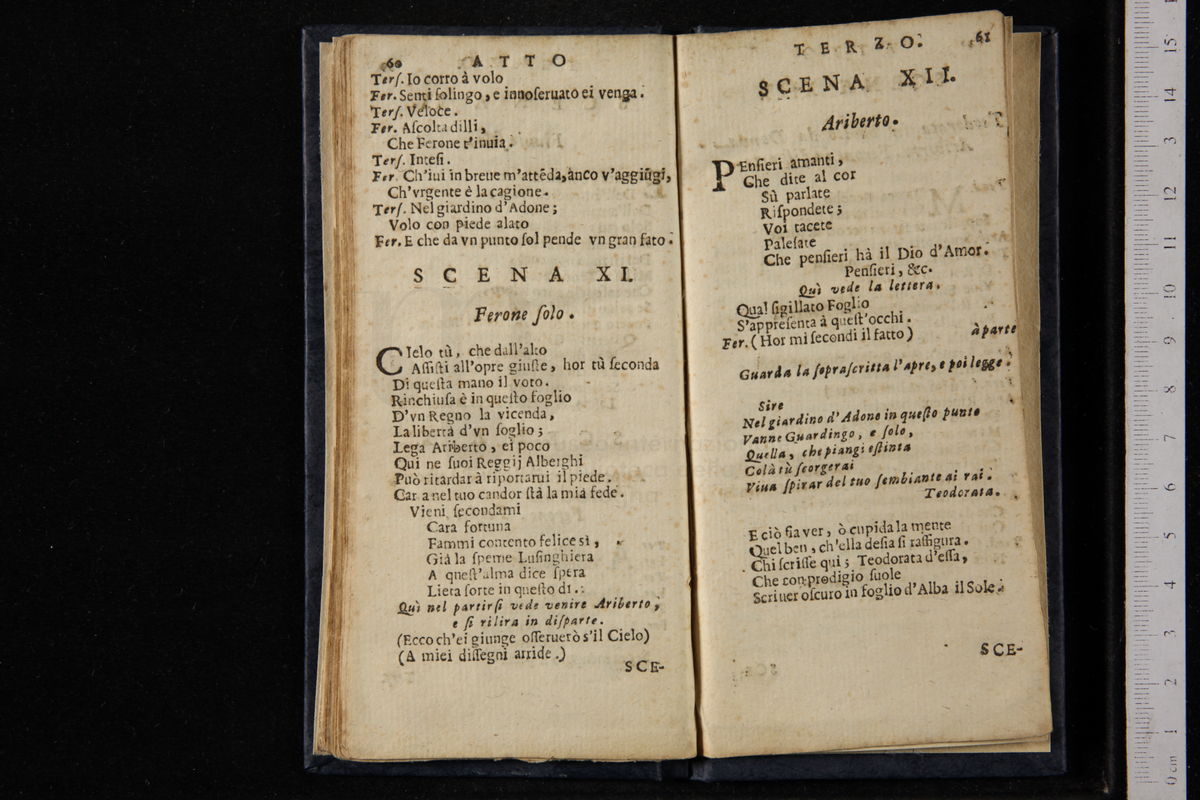 60 ATTO
Terſ. Io corro à volo
Fer. Senti ſolingo, e innoſeruato ei venga.
Terſ. Veloce.
Fer. Aſcolta dilli,
Che Ferone t'inuia.
Terſ. Inteſi.
Fer. Ch'iui in breue m'attēda, anco v'aggiūgi,
Ch'vrgente è la cagione.
Terſ. Nel giardino d'Adone;
Volo con piede alato
Fer. E che da vn punto ſol pende vn gran fato.
SCENA XI.
Ferone ſolo.
CIelo tù, che dall'alto
Aſſiſti all'opre giuſte, hor tù ſeconda
Di queſta mano il voto.
Rinchiuſa è in queſto foglio
D'vn Regno la vicenda,
La libertà d'vn ſoglio;
Lega Ariberto, ei poco
Qui ne ſuoi Reggij Alberghi
Può ritardar à riportarui il piede.
Car a nel tuo candor ſtà la mia fede.
Vieni ſecondami
Cara fortuna
Fammi contento felice sì,
Già la ſpeme Luſinghiera
A queſt'alma dice ſpera
Lieta ſorte in queſto dì.
Quì nel partirſi vede venire Ariberto,
e ſi rilira in diſparte.
(Ecco ch'ei giunge oſſeruerò s'il Cielo)
(A miei diſſegni arride.)
SCE-
TERZO. 61
SCENA XII.
Ariberto.
PEnſieri amanti,
Che dite al cor
Sù parlate
Riſpondete;
Voi tacete
Paleſate
Che penſieri hà il Dio d'Amor.
Penſieri, &c.
Quì vede la lettera.
Qual ſigillato Foglio
S'appreſenta à queſt'occhi.
Fer. (Hor mi ſecondi il fatto) à parte
Guarda la ſopraſcritta l'apre, e poi legge.
Sire
Nel giardino d'Adone in queſto punto
Vanne Guardingo, e ſolo,
Quella, che piangi eſtinta
Colà tù ſcorgerai
Viua ſpirar del tuo ſembiante ai rai.
Teodorata.
E ciò ſia ver, ò cupida la mente
Quel ben, ch'ella deſia ſi raffigura.
Chi ſcriſſe qui; Teodorata d'eſſa,
Che con prodigio ſuole
Scriuer oſcuro in foglio d'Alba il Sole.
SCE-
15
14
13
12
11
10
9
8
7
6
5
4
3
2
1
0 cm